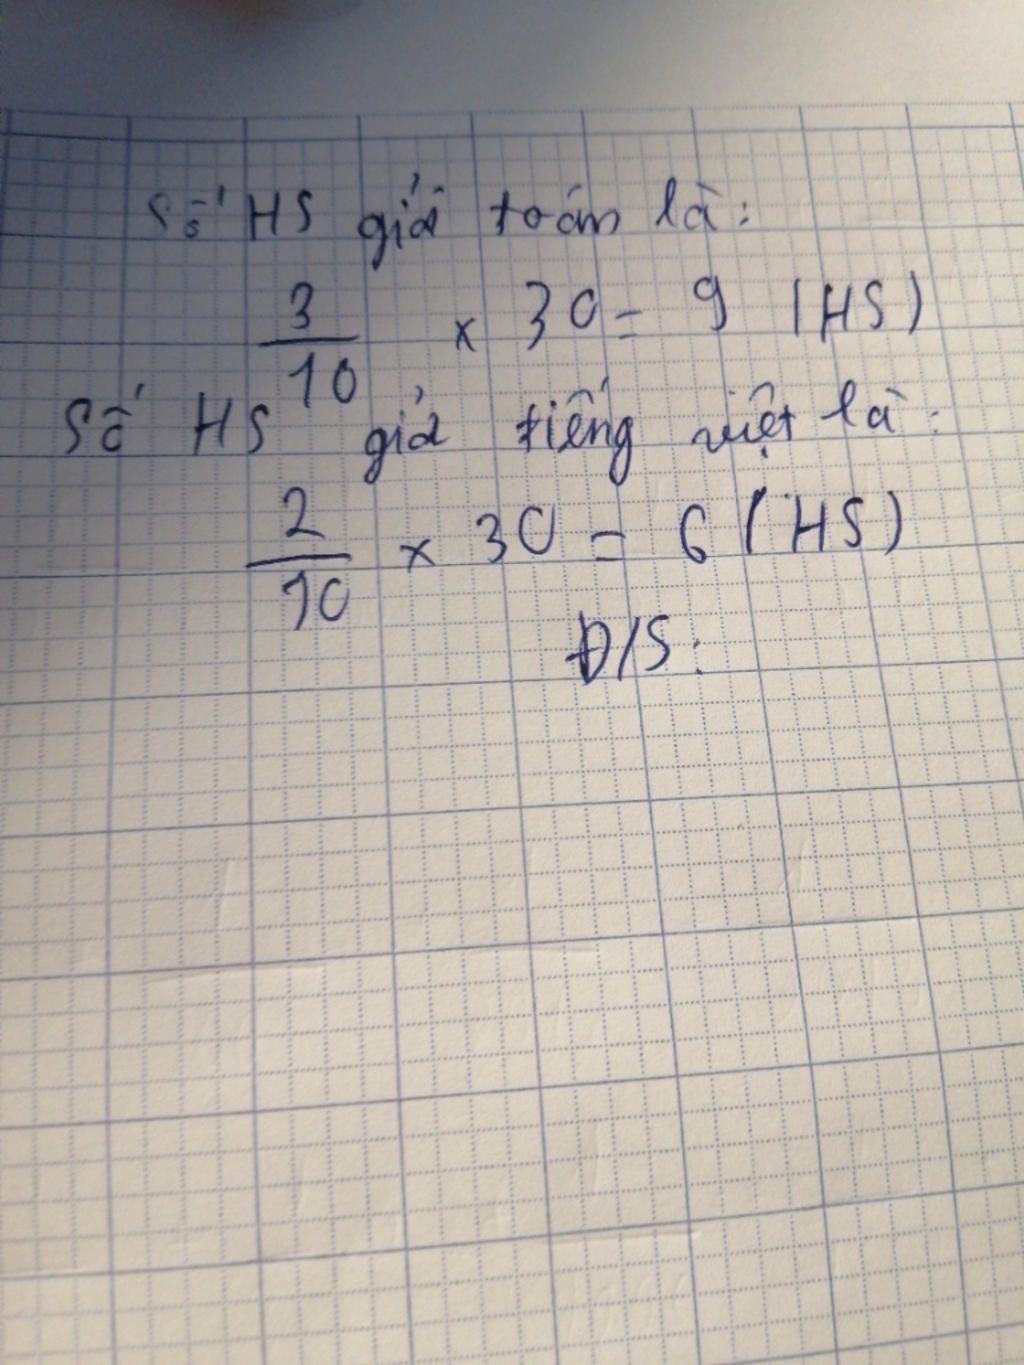 Số HS giỏi toán là:
3/10 x 30 = 9 (HS)
Số HS giỏi tiếng việt là:
2/10 x 30 = 6 (HS)
Đ/S: